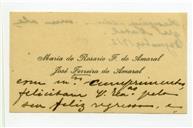 Maria do Rosario F. do Amaral
José Ferreira do Amaral
com m.tos cumprimentos
felicitam V. Ex.as pelo
seu feliz regresso, e